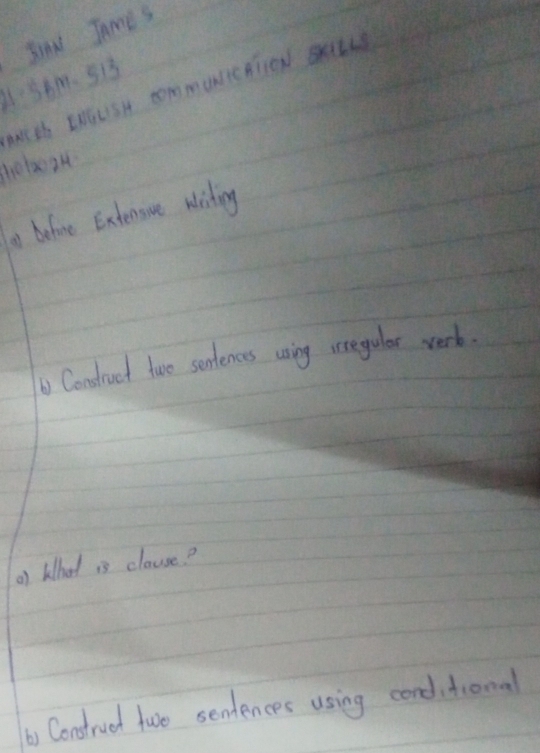 JAMES
ENGLISH COMMUNICATION SKILLS
a) Define Extensive Writing
b) Construct two sentences using irregular verb.
a) What is clause?
b) Construct two sentences using conditional